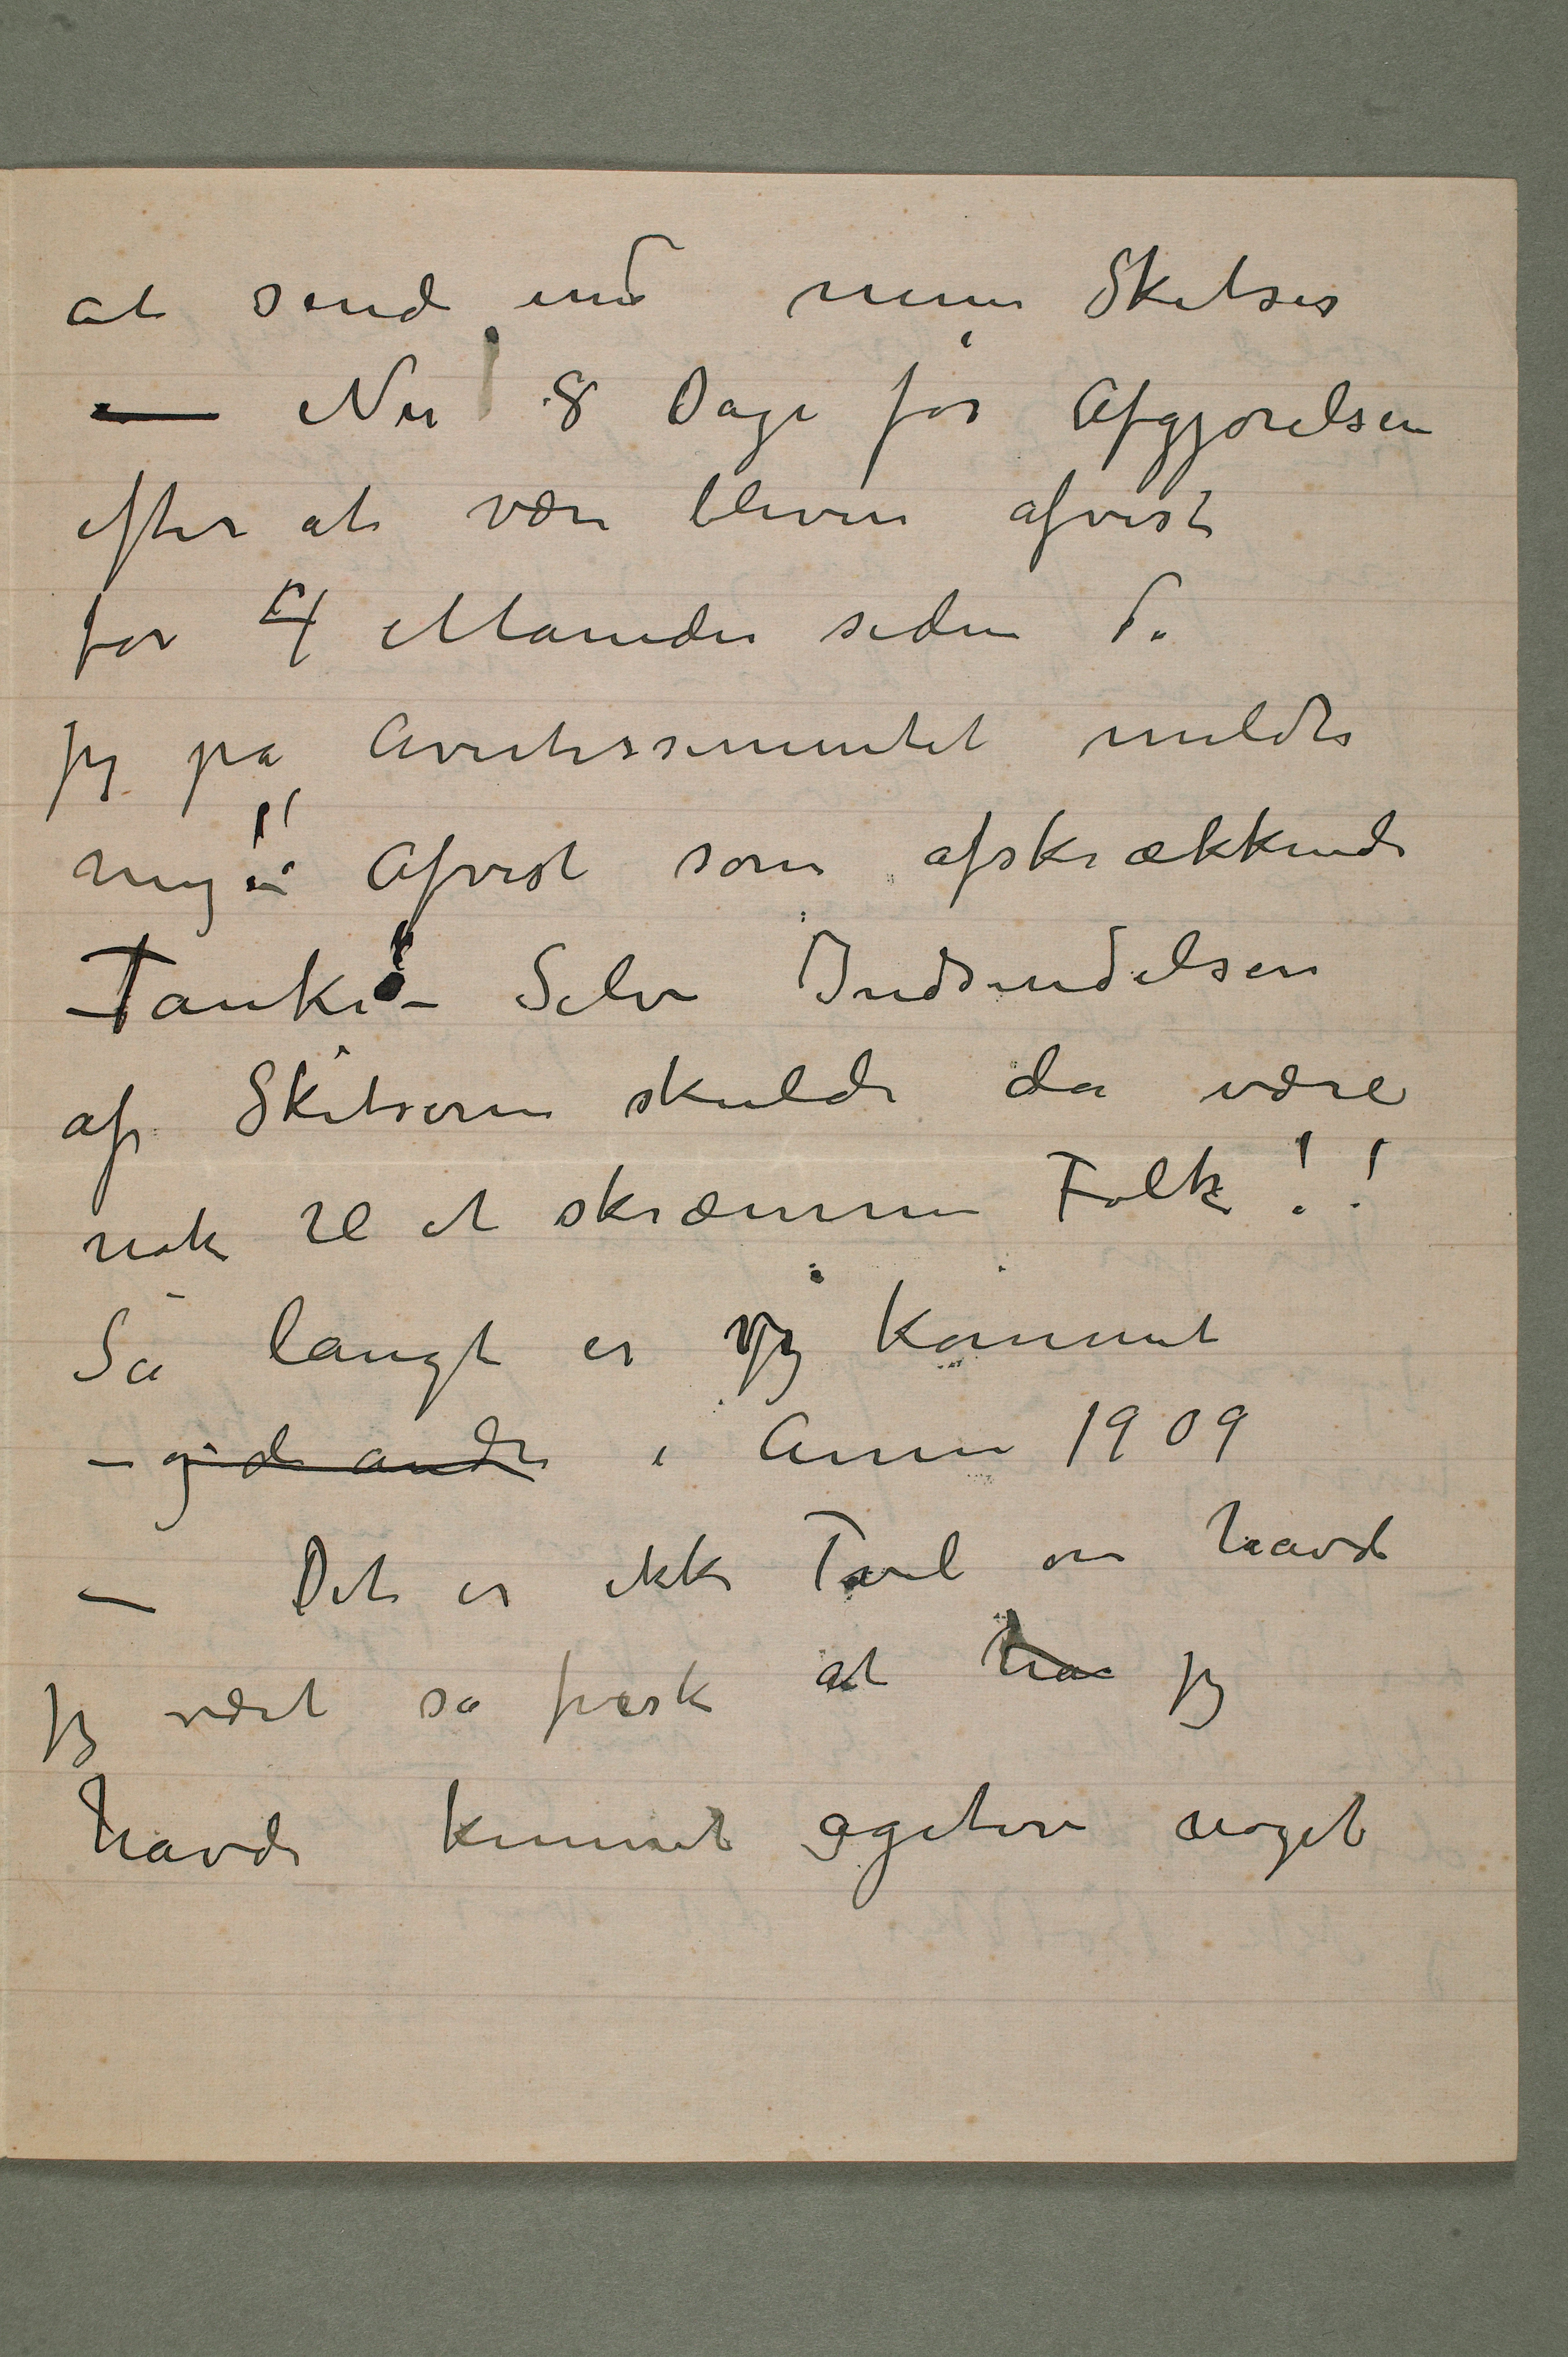 at sende ind mine Skitser
— Nu 8 Dage før Afgjørelsen
efter at være bleven afvist
for 4 Maaneder siden da
jeg på Avertissementet meldte
mig!! Afvist som afskrækkende
– Tanke! – Selve Indsendelsen
af Skitserne skulde da være
nok til at skræmme Folk!!
Så langt er jeg kommet
– og de andre i Anno 1909
— Det er ikke Tvil om havde
jeg været så frisk at ha jeg
havde kunnet agitere noget